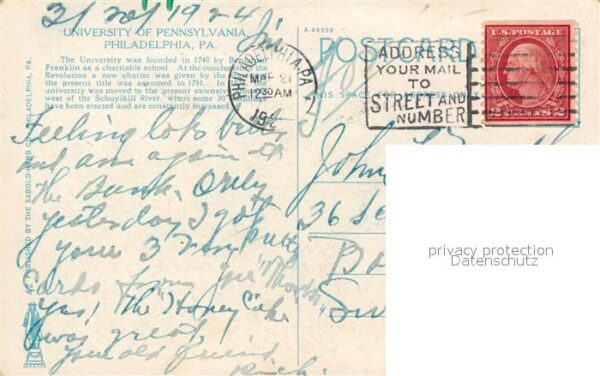 3/20/1924
UNIVERSITY OF PENNSYLVANIA,
PHILADELPHIA, PA.
The University was founded in 1740 by
Franklin as a charitable school. At the conclusion of the
Revolution a new charter was given by the
the present title was assumed in 1791. In
university was moved to the present extensive
west of the Schuylkill River, where some 70
have been erected and are constantly increased.
Feeling lots better
and am again at
the Bank. Only
yesterday I got
your 3 very pretty
cards from you
yes! The "Honey Cake"
was great,
your old friend
Rich.
A-49399
POSTCARD
THIS SPACE FOR ADDRESS ONLY
PHILADELPHIA, PA.
MAR 21
1230 AM
192
ADDRESS
YOUR MAIL
TO
STREET AND
NUMBER
U.S. POSTAGE
2 CENTS 2
John
36
privacy protection
Datenschutz
PUBLISHED BY THE SABOLD-HERB CO., PHILADELPHIA, PA.